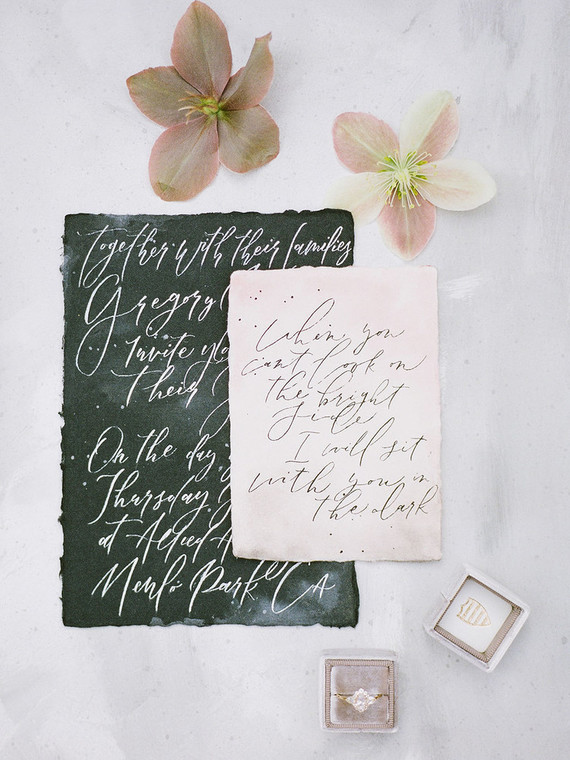 together with their families
Gregory
Invite you
Their
On the day
Thursday
at Allied A
Menlo Park CA
When you
can't look on
the bright
side
I will sit
with you in
the dark